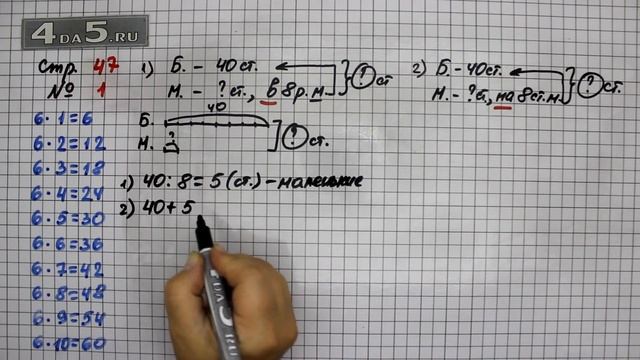 4DA5.RU
Стр. 47
№ 1
1) Б. - 40 ст.
М. - ? ст., в 8 р. м } ? ст
2) Б. - 40 ст.
М. - ? ст, на 8 ст. м } ? ст.
40
Б.
?
М.
? ст.
1) 40 : 8 = 5 (ст.) - маленькие
2) 40 + 5
6 · 1 = 6
6 · 2 = 12
6 · 3 = 18
6 · 4 = 24
6 · 5 = 30
6 · 6 = 36
6 · 7 = 42
6 · 8 = 48
6 · 9 = 54
6 · 10 = 60
4DA5.RU